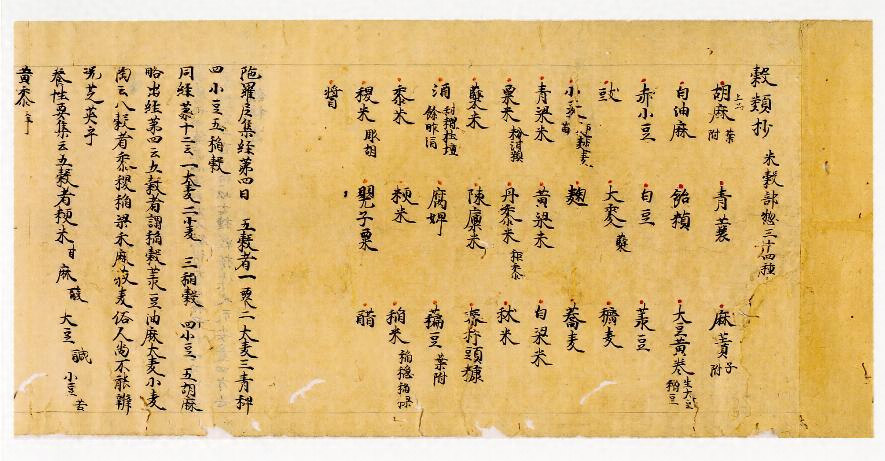 穀類抄 米穀部惣三十四種
胡麻 葉附 青蘘 麻蕡 子附
白油麻 飴糖 大豆黄巻 生大豆
赤小豆 白豆 菉豆
豉 大麦 蘖 穬麦
小麦 麹 蕎麦
青粱米 黄粱米 白粱米
粟米 丹黍米 秬黍 秫米
蘖米 陳廩米 舂杵頭糠
酒 腐婢 藊豆 葉附
黍米 粳米 稲米 稲穏稲稈
稷米 彫胡 罌子粟 醋
醤
陁羅尼集経第四曰 五穀者一粟二大麦三青稞
四小豆五稲穀
同経第十二云一大麦二小麦 三稲穀 四小豆 五胡麻
略出経第四云五穀者謂稲穀菉豆油麻大麦小麦
陶云八穀者黍稷稲粱禾麻菽麦俗人尚不能辨
况芝英乎
養性要集云五穀者粳米 甘 麻 酸 大豆 鹹 小豆 苦
黄黍 辛